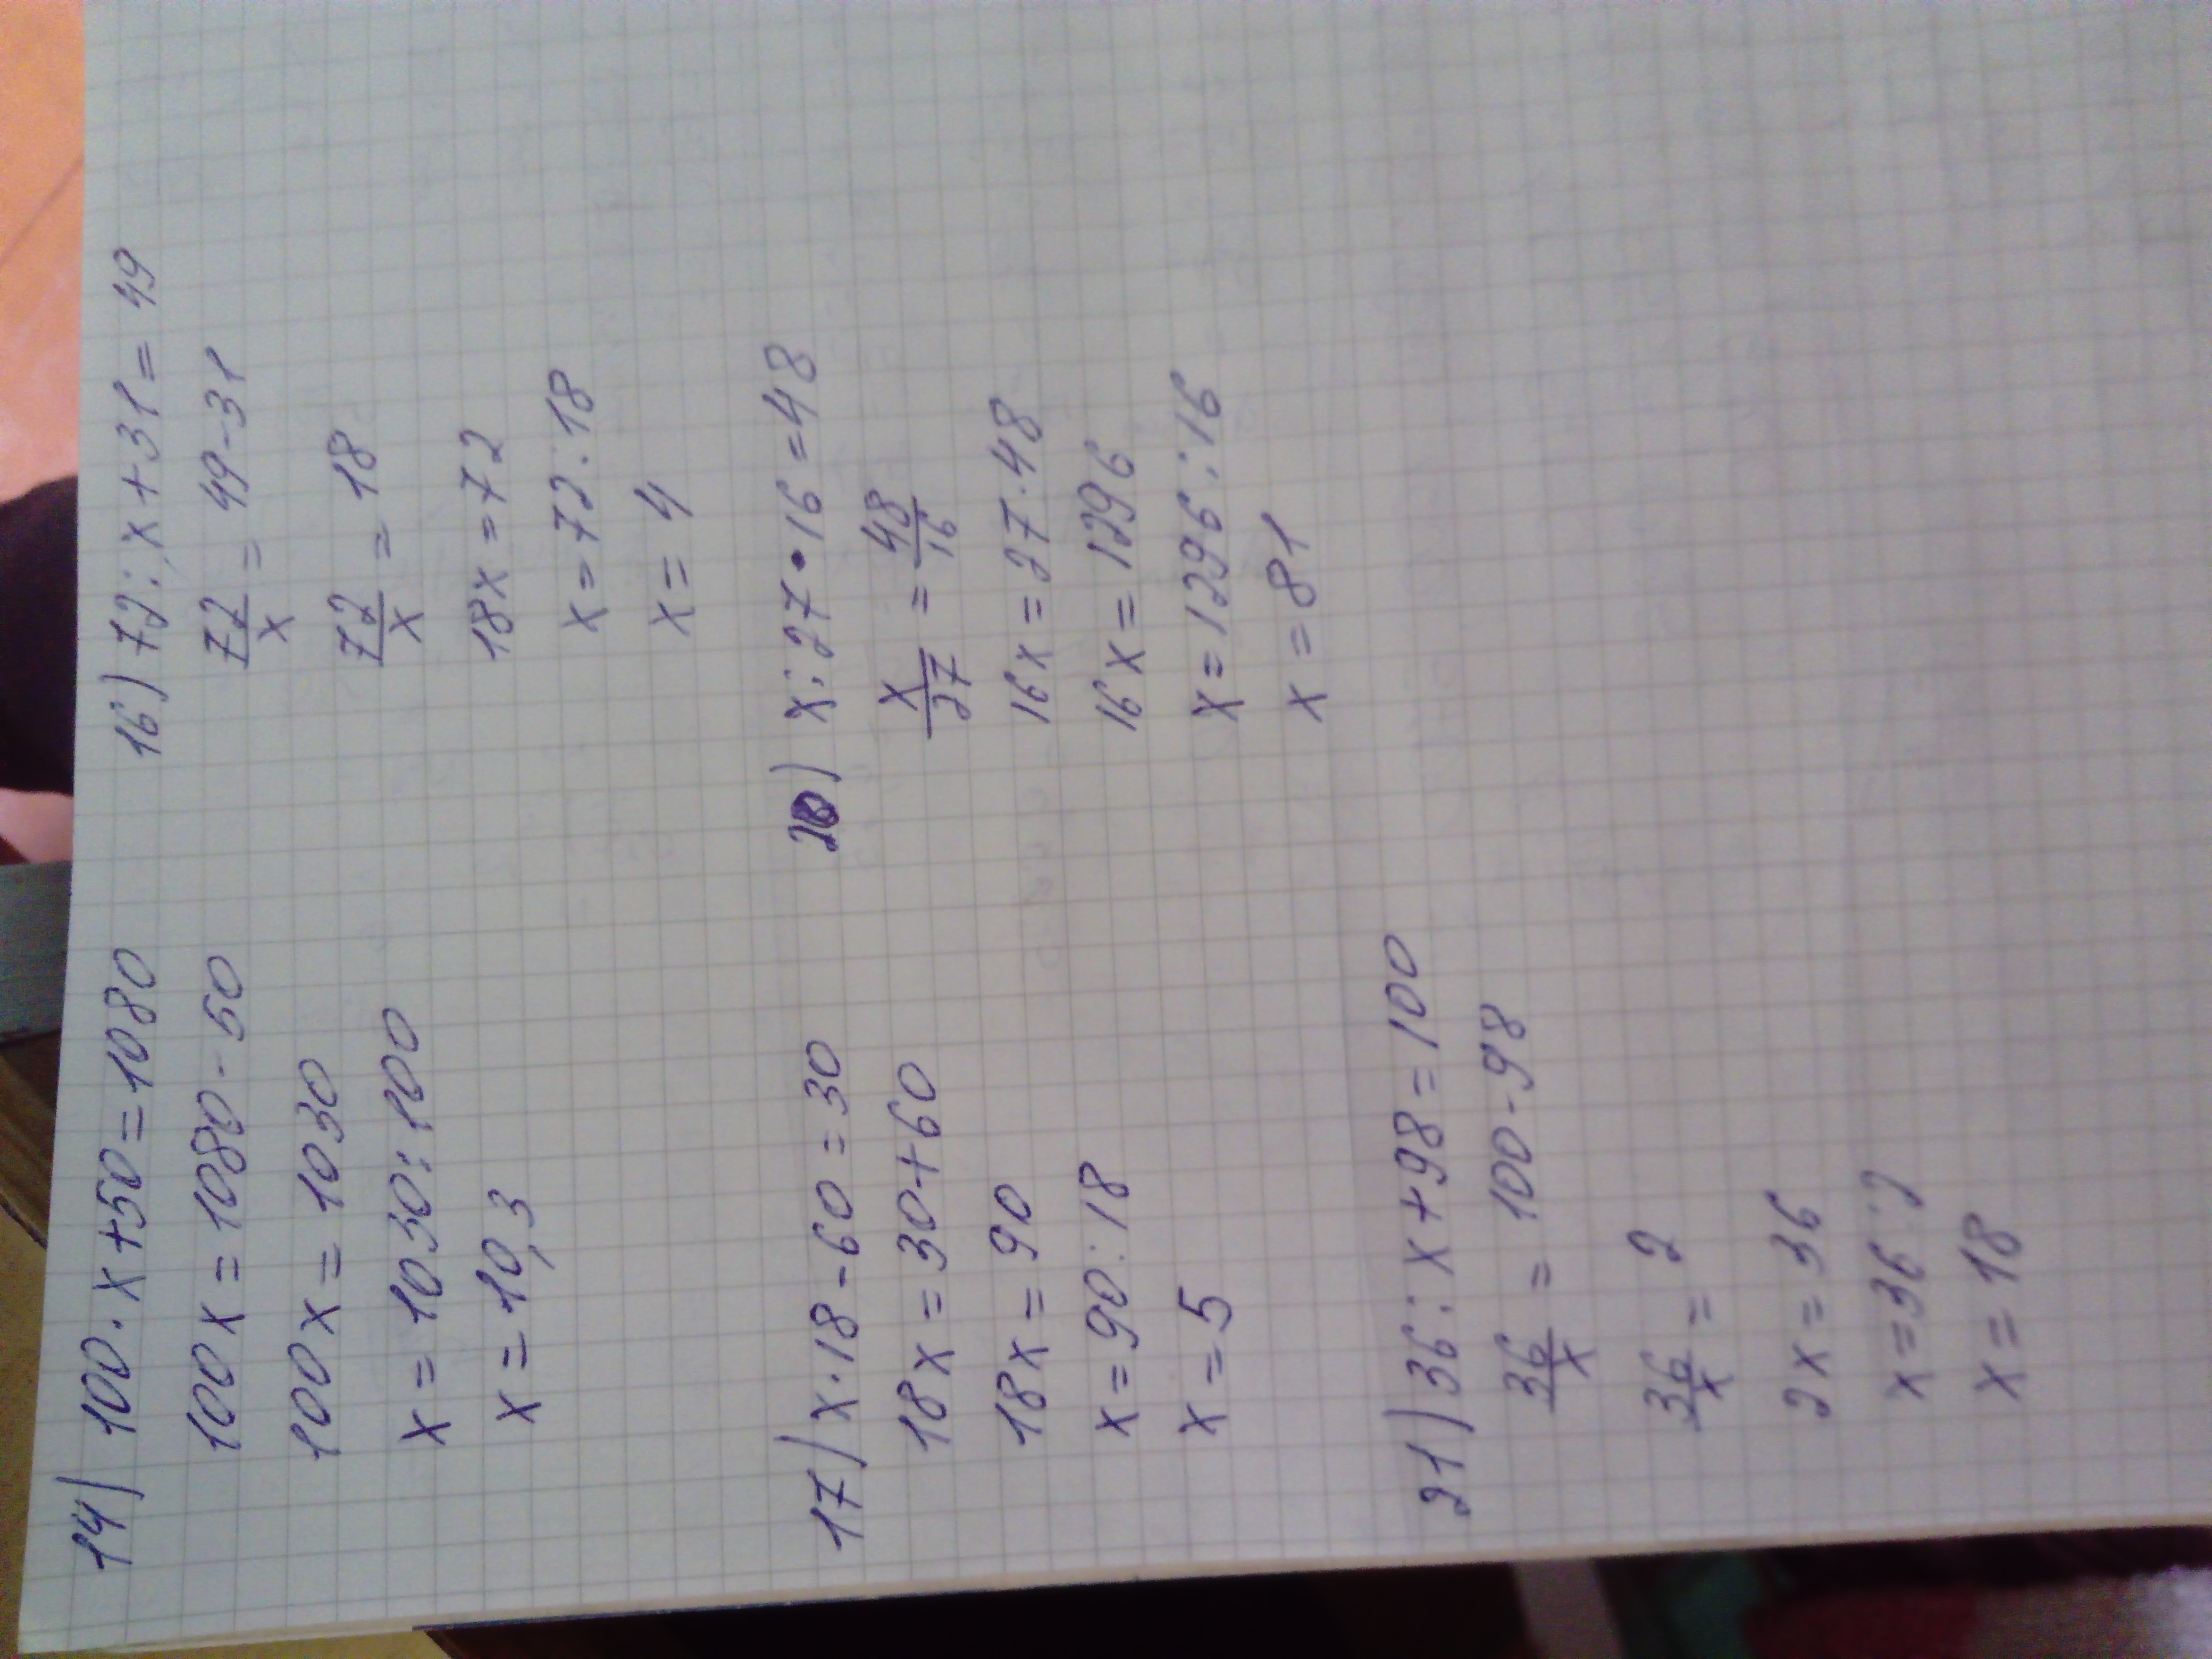 14) 100·x+50=1080
100x=1080-50
100x=1030
x=1030:100
x=10,3
16) 72:x+31=49
72/x=49-31
72/x=18
18x=72
x=72:18
x=4
17) x·18-60=30
18x=30+60
18x=90
x=90:18
x=5
20) x:27·16=48
x/27=48/16
16x=27·48
16x=1296
x=1296:16
x=81
21) 36:x+98=100
36/x=100-98
36/x=2
2x=36
x=36:2
x=18